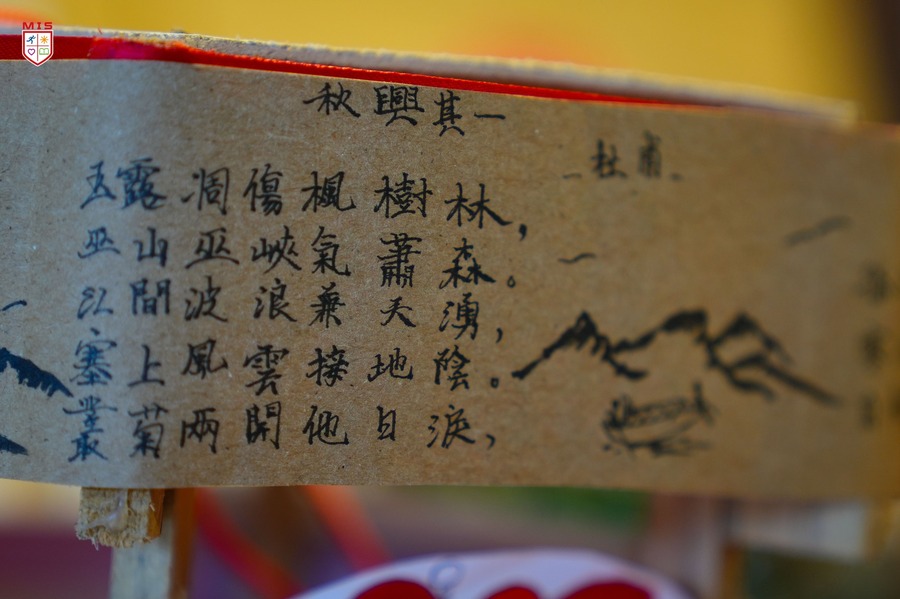 MIS
秋興其一
- 杜甫 -
玉露凋傷楓樹林,
巫山巫峽氣蕭森。
江間波浪兼天湧,
塞上風雲接地陰。
叢菊兩開他日淚,